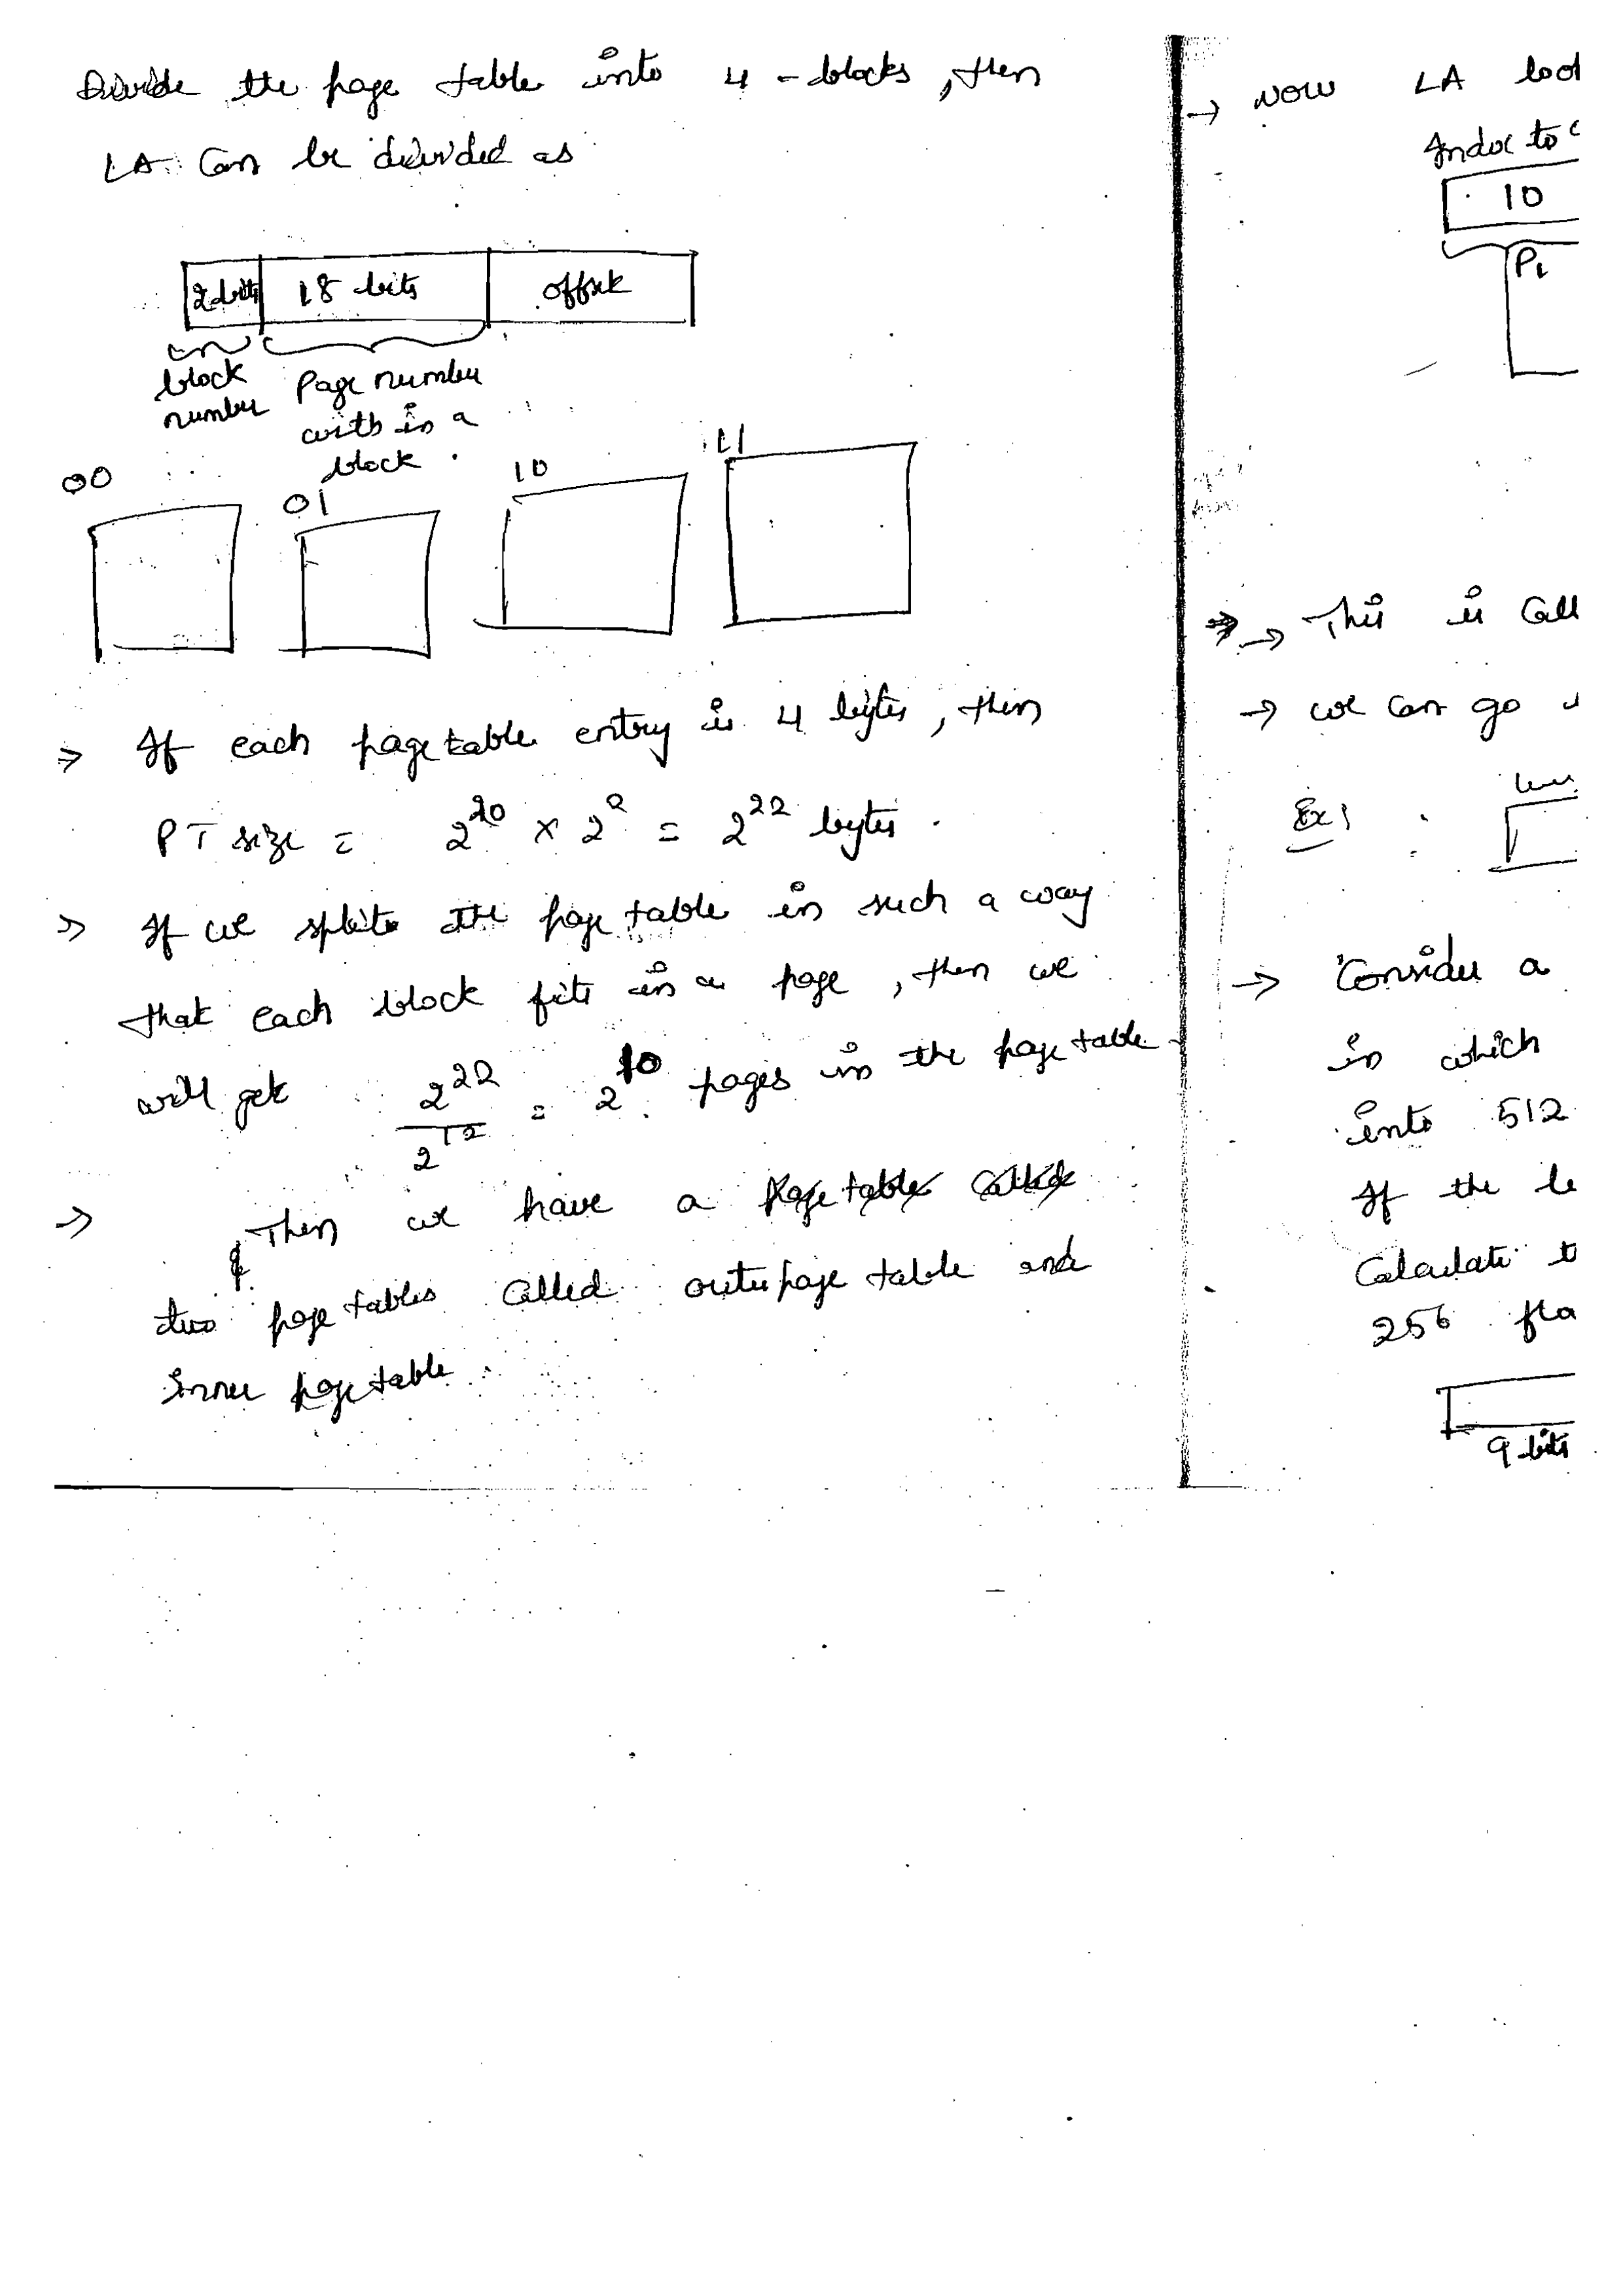 Divide the page table into 4 - blocks, then
LA can be divided as
2 bits 18 bits offset
block number Page number with in a block.
00 01 10 11
⇒ If each page table entry is 4 bytes, then
PT size = 2^20 × 2^2 = 2^22 bytes.
⇒ If we splits the page table in such a way
that each block fits in a page, then we
will get 2^22 / 2^12 = 2^10 pages in the page table
→ Then we have a page table called
two page tables called outer page table and
inner page table.
→ Now LA
Index to
10
P1
→ This is
→ we can go
Ex:
→ Consider a
in which
into 512
If the
Calculate
256
9 bits